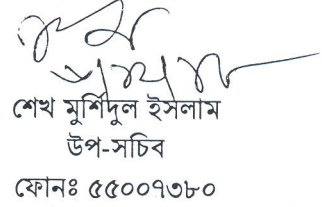 শেখ মুর্শিদুল ইসলাম
উপ-সচিব
ফোনঃ ৫৫০০৭৩৮০